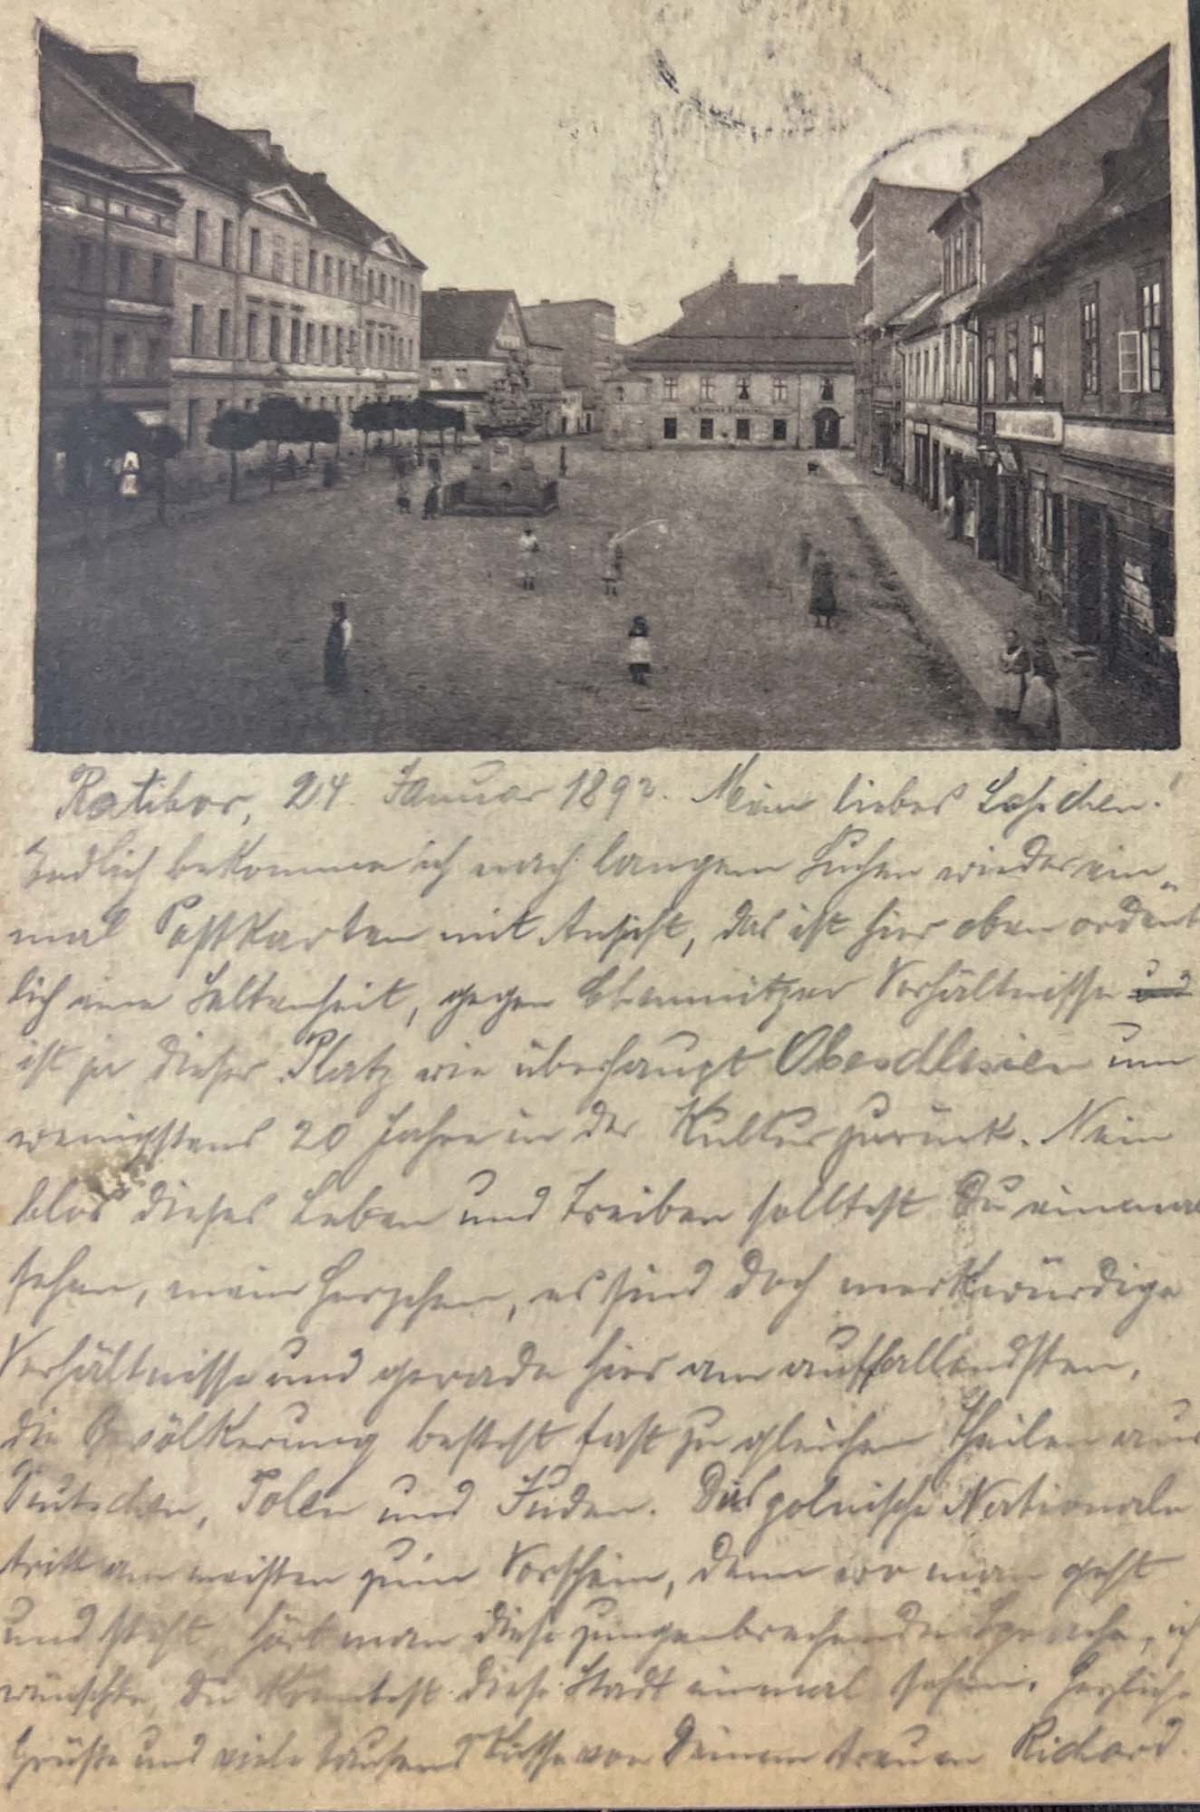 Ratibor, 24. Januar 1892. Mein liebes
Endlich bekomme ich nach langem Suchen wieder ein-
mal Postkarten mit Ansicht, das ist hier oben ordent
lich eine Seltenheit, gegen Chemnitzer Verhältnisse
ist ja dieser Platz wie überhaupt Oberschlesien um
wenigstens 20 Jahre in der Kultur zurück. Nein
blos dieses Leben und Treiben solltest Du einmal
sehen, mein Herzchen, es sind doch merkwürdige
Verhältnisse und gerade hier am auffallendsten,
die Bevölkerung besteht fast zu gleichen Theilen aus
Deutschen, Polen und Juden. Das polnische Nationale
tritt am meisten zum Vorschein, denn wo man geht
und steht, hört man diese zungenbrechende Sprache, ich
wünschte, Du könntest diese Stadt einmal sehen. Herzliche
Grüße und viele tausend Küsse von Deinem treuen Richard.